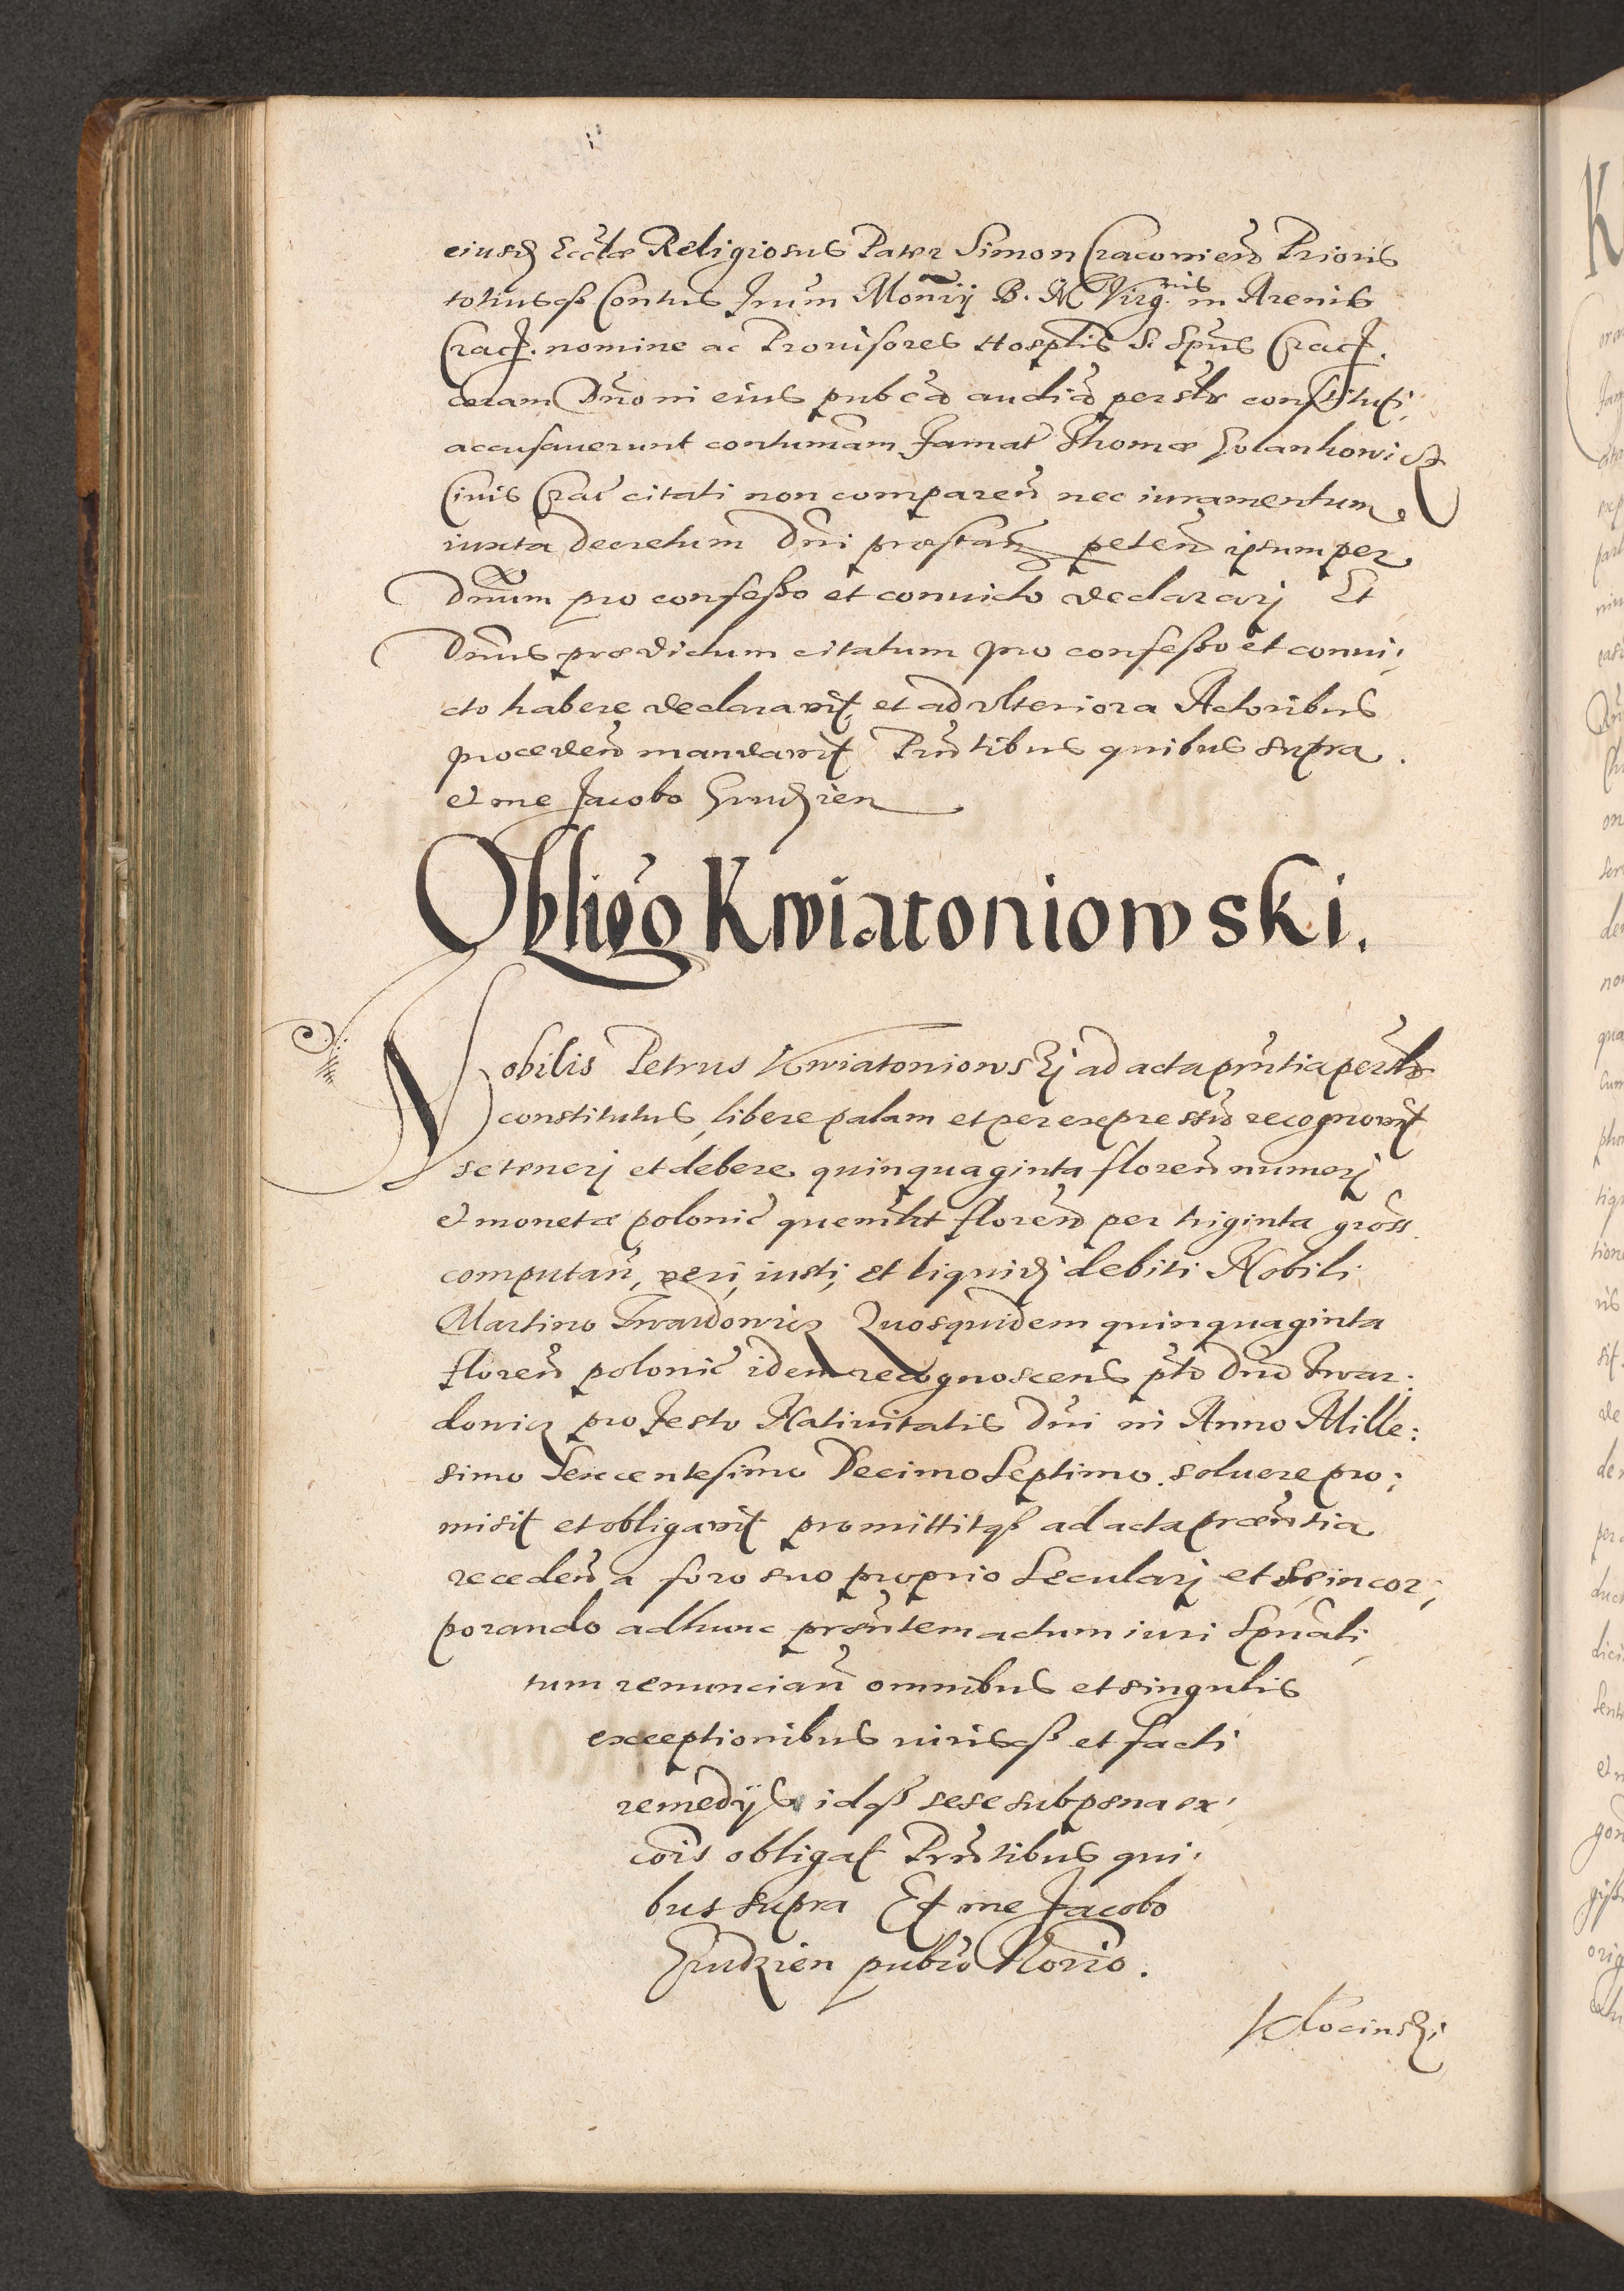 eiusd Ecclæ Religiosus Pater Simon Cracovien Prioris
totiusqß Contus Frum Monrij B. M Virg.nis in Arenis
Crac. nomine ac Provisores Hosptlis S. Spus Crac.
coram Dno in eius pubca audia persltr constituti,
accusaverunt contumam Famat Thomæ Golankowicz
Civis Crac citati non comparen nec iuramentum
iuxta decretum Dni præstan peten ipsum per
Dnum pro confesso et convicto declararj Et
Dnus prædictum citatum pro confesso et convi,
cto habere declaravit, et ad ulteriora Actoribus
proceden mandavit Prntibus quibus supra.
et me Jacobo Grudzien
Obligo Kwiatoniowski.
Nobilis Petrus Kwiatoniowskj ad acta prntia persltr
constitutus, libere palam et per expressum recognovit
se tenerj et debere quinquaginta floren numerj
et monetæ polonic quemlt floren per triginta gross
computan, veri, iusti, et liquidj debiti Nobili
Martino Twardowicz Quosquidem quinquaginta
floren polonic idem recognoscens pto Dno Twar:
dowicz pro Festo Nativitatis Dni in Anno Mille:
simo Sexcentesimo Decimo Septimo. solvere pro:
misit et obligavit promittitqß ad acta præntia
receden a foro suo proprio Secularj et se incor,
porando ad hunc præntem actum iuri Spuali,
tum renuncian omnibus et singulis
exceptionibus iurisqß et facti
remedijs idqß sese sub pœna ex,
cois obligat Prntibus qui,
bus supra Et me Jacobo
Grudzien pubco Norio.
Klocinskj